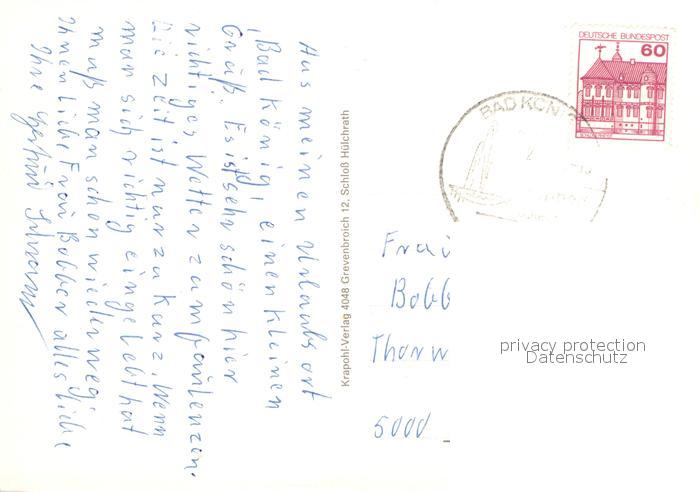 Aus meinen Urlaubsort
, Bad König, einen kleinen
Gruß. Es ist sehr schön hier
richtiges Wetter zum faulenzen.
Die Zeit ist nur zu kurz, wenn
man sich richtig eingelebt hat
muß man schon wieder weg.
Ihnen liebe Frau Bobber alles liebe
Ihre
Krapohl-Verlag 4048 Grevenbroich 12, Schloß Hülchrath
DEUTSCHE BUNDESPOST
60
BAD KÖNIG
Frau
Bobb
5000
privacy protection
Datenschutz